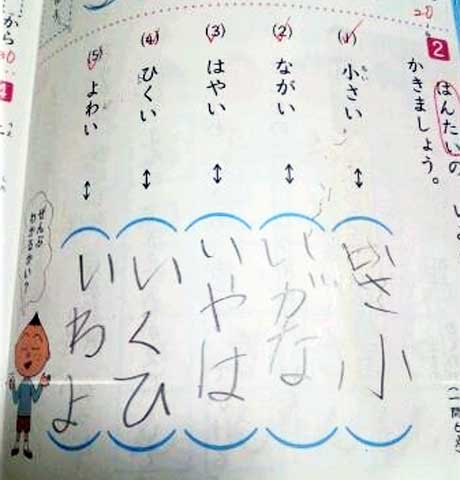 2
はんたいの い
かきましょう。
(1) 小さい ↔ いさ小
ちい
(2) ながい ↔ いがな
(3) はやい ↔ いやは
(4) ひくい ↔ いくひ
(5) よわい ↔ いわよ
ぜんぶ
わかるかい?
から
20